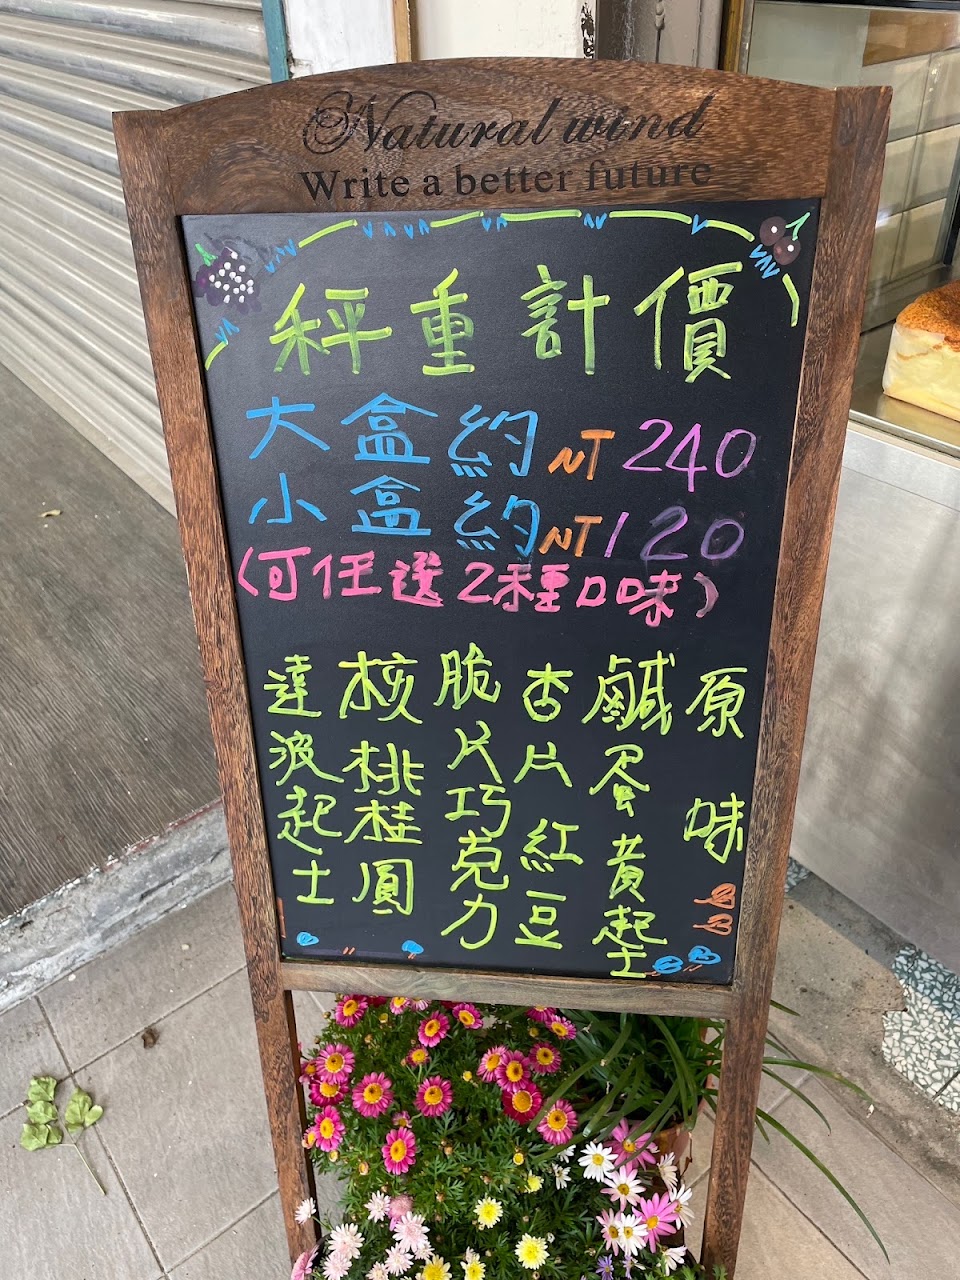 Natural wind
Write a better future
秤重計價
大盒約NT240
小盒約NT120
(可任選2種口味)
原味
鹹蛋黃起士
杏片紅豆
脆片巧克力
核桃桂圓
達波起士